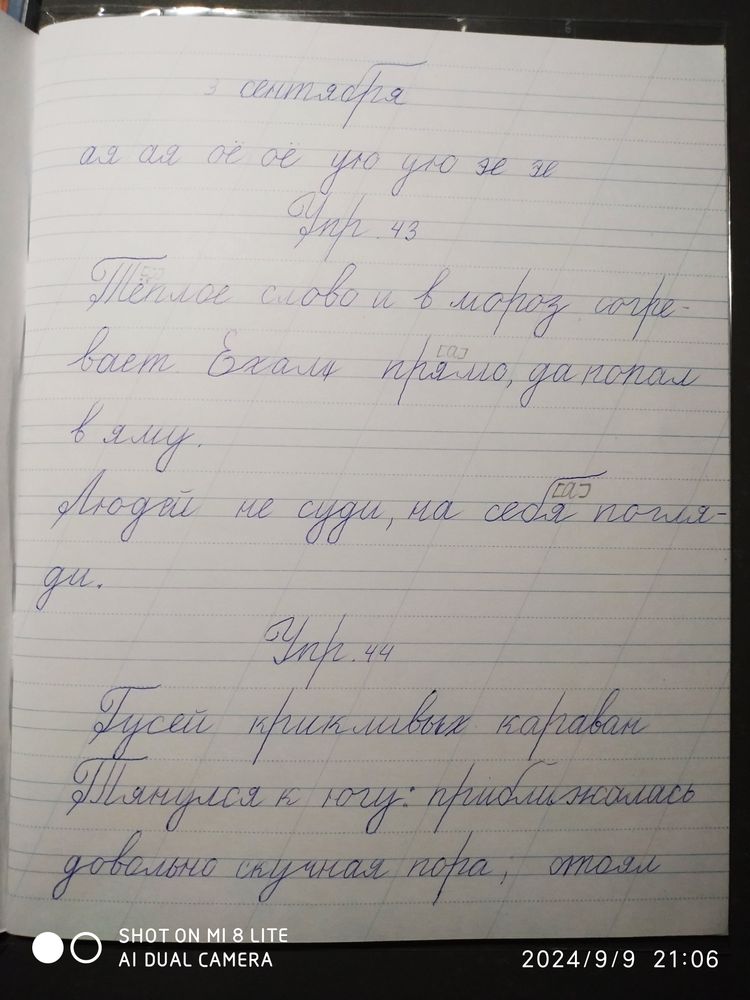 3 сентября
ая ая оё оё ую ую эе эе
Упр. 43
[о]
Тёплое слово и в мороз согре-
[а]
вает Ехали прямо, да попал
в яму.
[а]
Людей не суди, на себя погля-
ди.
Упр. 44
Гусей крикливых караван
Тянулся к югу: приближалась
довольно скучная пора; стоял
SHOT ON MI 8 LITE
AI DUAL CAMERA
2024/9/9 21:06